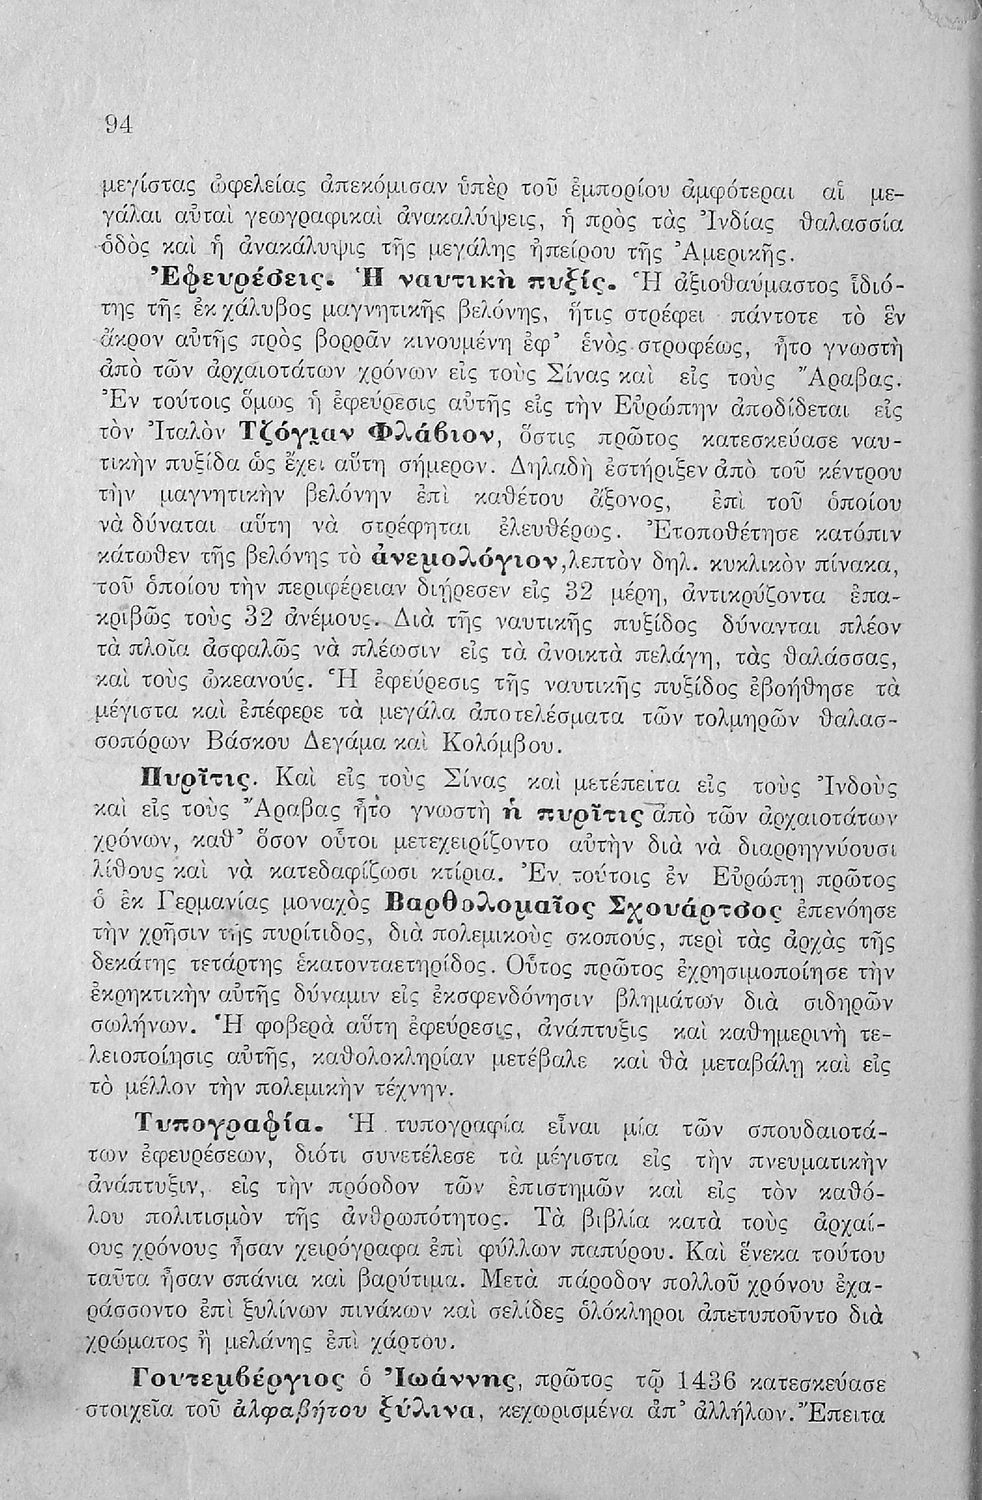 94
μεγίστας ὠφελείας ἀπεκόμισαν ὑπὲρ τοῦ ἐμπορίου ἀμφότεραι αἱ με-
γάλαι αὗται γεωγραφικαὶ ἀνακαλύψεις, ἡ πρὸς τὰς Ἰνδίας θαλασσία
ὁδὸς καὶ ἡ ἀνακάλυψις τῆς μεγάλης ἠπείρου τῆς Ἀμερικῆς.
Ἐφευρέσεις. Ἡ ναυτικὴ πυξίς. Ἡ ἀξιοθαύμαστος ἰδιό-
της τῆς ἐκ χάλυβος μαγνητικῆς βελόνης, ἥτις στρέφει πάντοτε τὸ ἓν
ἄκρον αὐτῆς πρὸς βορρᾶν κινουμένη ἐφ' ἑνὸς στροφέως, ἦτο γνωστὴ
ἀπὸ τῶν ἀρχαιοτάτων χρόνων εἰς τοὺς Σίνας καὶ εἰς τοὺς Ἄραβας.
Ἐν τούτοις ὅμως ἡ ἐφεύρεσις αὐτῆς εἰς τὴν Εὐρώπην ἀποδίδεται εἰς
τὸν Ἰταλὸν Τζόγιαν Φλάβιον, ὅστις πρῶτος κατεσκεύασε ναυ-
τικὴν πυξίδα ὡς ἔχει αὕτη σήμερον. Δηλαδὴ ἐστήριξεν ἀπὸ τοῦ κέντρου
τὴν μαγνητικὴν βελόνην ἐπὶ καθέτου ἄξονος, ἐπὶ τοῦ ὁποίου
νὰ δύναται αὕτη νὰ στρέφηται ἐλευθέρως. Ἐτοποθέτησε κατόπιν
κάτωθεν τῆς βελόνης τὸ ἀνεμολόγιον, λεπτὸν δηλ. κυκλικὸν πίνακα,
τοῦ ὁποίου τὴν περιφέρειαν διῄρεσεν εἰς 32 μέρη, ἀντικρύζοντα ἐπα-
κριβῶς τοὺς 32 ἀνέμους. Διὰ τῆς ναυτικῆς πυξίδος δύνανται πλέον
τὰ πλοῖα ἀσφαλῶς νὰ πλέωσιν εἰς τὰ ἀνοικτὰ πελάγη, τὰς θαλάσσας,
καὶ τοὺς ὠκεανούς. Ἡ ἐφεύρεσις τῆς ναυτικῆς πυξίδος ἐβοήθησε τὰ
μέγιστα καὶ ἐπέφερε τὰ μεγάλα ἀποτελέσματα τῶν τολμηρῶν θαλασ-
σοπόρων Βάσκου Δεγάμα καὶ Κολόμβου.
Πυρῖτις. Καὶ εἰς τοὺς Σίνας καὶ μετέπειτα εἰς τοὺς Ἰνδοὺς
καὶ εἰς τοὺς Ἄραβας ἦτο γνωστὴ ἡ πυρῖτις ἀπὸ τῶν ἀρχαιοτάτων
χρόνων, καθ' ὅσον οὗτοι μετεχειρίζοντο αὐτὴν διὰ νὰ διαρρηγνύουσι
λίθους καὶ νὰ κατεδαφίζωσι κτίρια. Ἐν τούτοις ἐν Εὐρώπῃ πρῶτος
ὁ ἐκ Γερμανίας μοναχὸς Βαρθολομαῖος Σχουάρτσος ἐπενόησε
τὴν χρῆσιν τῆς πυρίτιδος, διὰ πολεμικοὺς σκοπούς, περὶ τὰς ἀρχὰς τῆς
δεκάτης τετάρτης ἑκατονταετηρίδος. Οὗτος πρῶτος ἐχρησιμοποίησε τὴν
ἐκρηκτικὴν αὐτῆς δύναμιν εἰς ἐκσφενδόνησιν βλημάτων διὰ σιδηρῶν
σωλήνων. Ἡ φοβερὰ αὕτη ἐφεύρεσις, ἀνάπτυξις καὶ καθημερινὴ τε-
λειοποίησις αὐτῆς, καθολοκληρίαν μετέβαλε καὶ θὰ μεταβάλῃ καὶ εἰς
τὸ μέλλον τὴν πολεμικὴν τέχνην.
Τυπογραφία. Ἡ τυπογραφία εἶναι μία τῶν σπουδαιοτά-
των ἐφευρέσεων, διότι συνετέλεσε τὰ μέγιστα εἰς τὴν πνευματικὴν
ἀνάπτυξιν, εἰς τὴν πρόοδον τῶν ἐπιστημῶν καὶ εἰς τὸν καθό-
λου πολιτισμὸν τῆς ἀνθρωπότητος. Τὰ βιβλία κατὰ τοὺς ἀρχαί-
ους χρόνους ἦσαν χειρόγραφα ἐπὶ φύλλων παπύρου. Καὶ ἕνεκα τούτου
ταῦτα ἦσαν σπάνια καὶ βαρύτιμα. Μετὰ πάροδον πολλοῦ χρόνου ἐχα-
ράσσοντο ἐπὶ ξυλίνων πινάκων καὶ σελίδες ὁλόκληροι ἀπετυποῦντο διὰ
χρώματος ἢ μελάνης ἐπὶ χάρτου.
Γουτεμβέργιος ὁ Ἰωάννης, πρῶτος τῷ 1436 κατεσκεύασε
στοιχεῖα τοῦ ἀλφαβήτου ξύλινα, κεχωρισμένα ἀπ' ἀλλήλων. Ἔπειτα